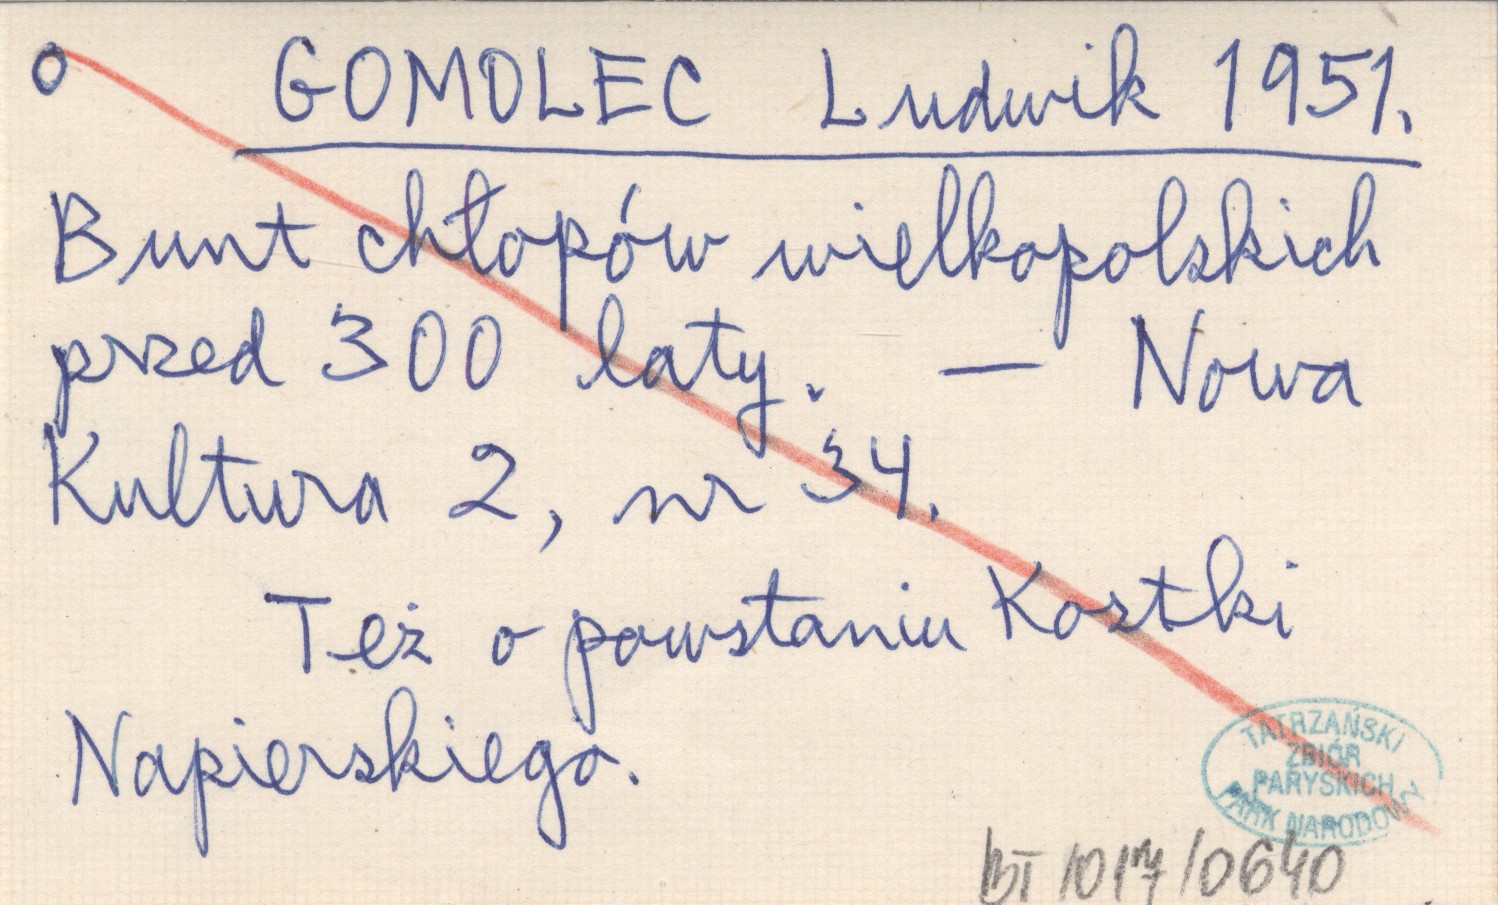 o GOMOLEC Ludwik 1951.
Bunt chłopów wielkopolskich
przed 300 laty. — Nowa
Kultura 2, nr 34.
Też o powstaniu Kostki
Napierskiego.
TATRZAŃSKI
ZBIÓR
PARYSKICH
PARK NARODOWY
/0640